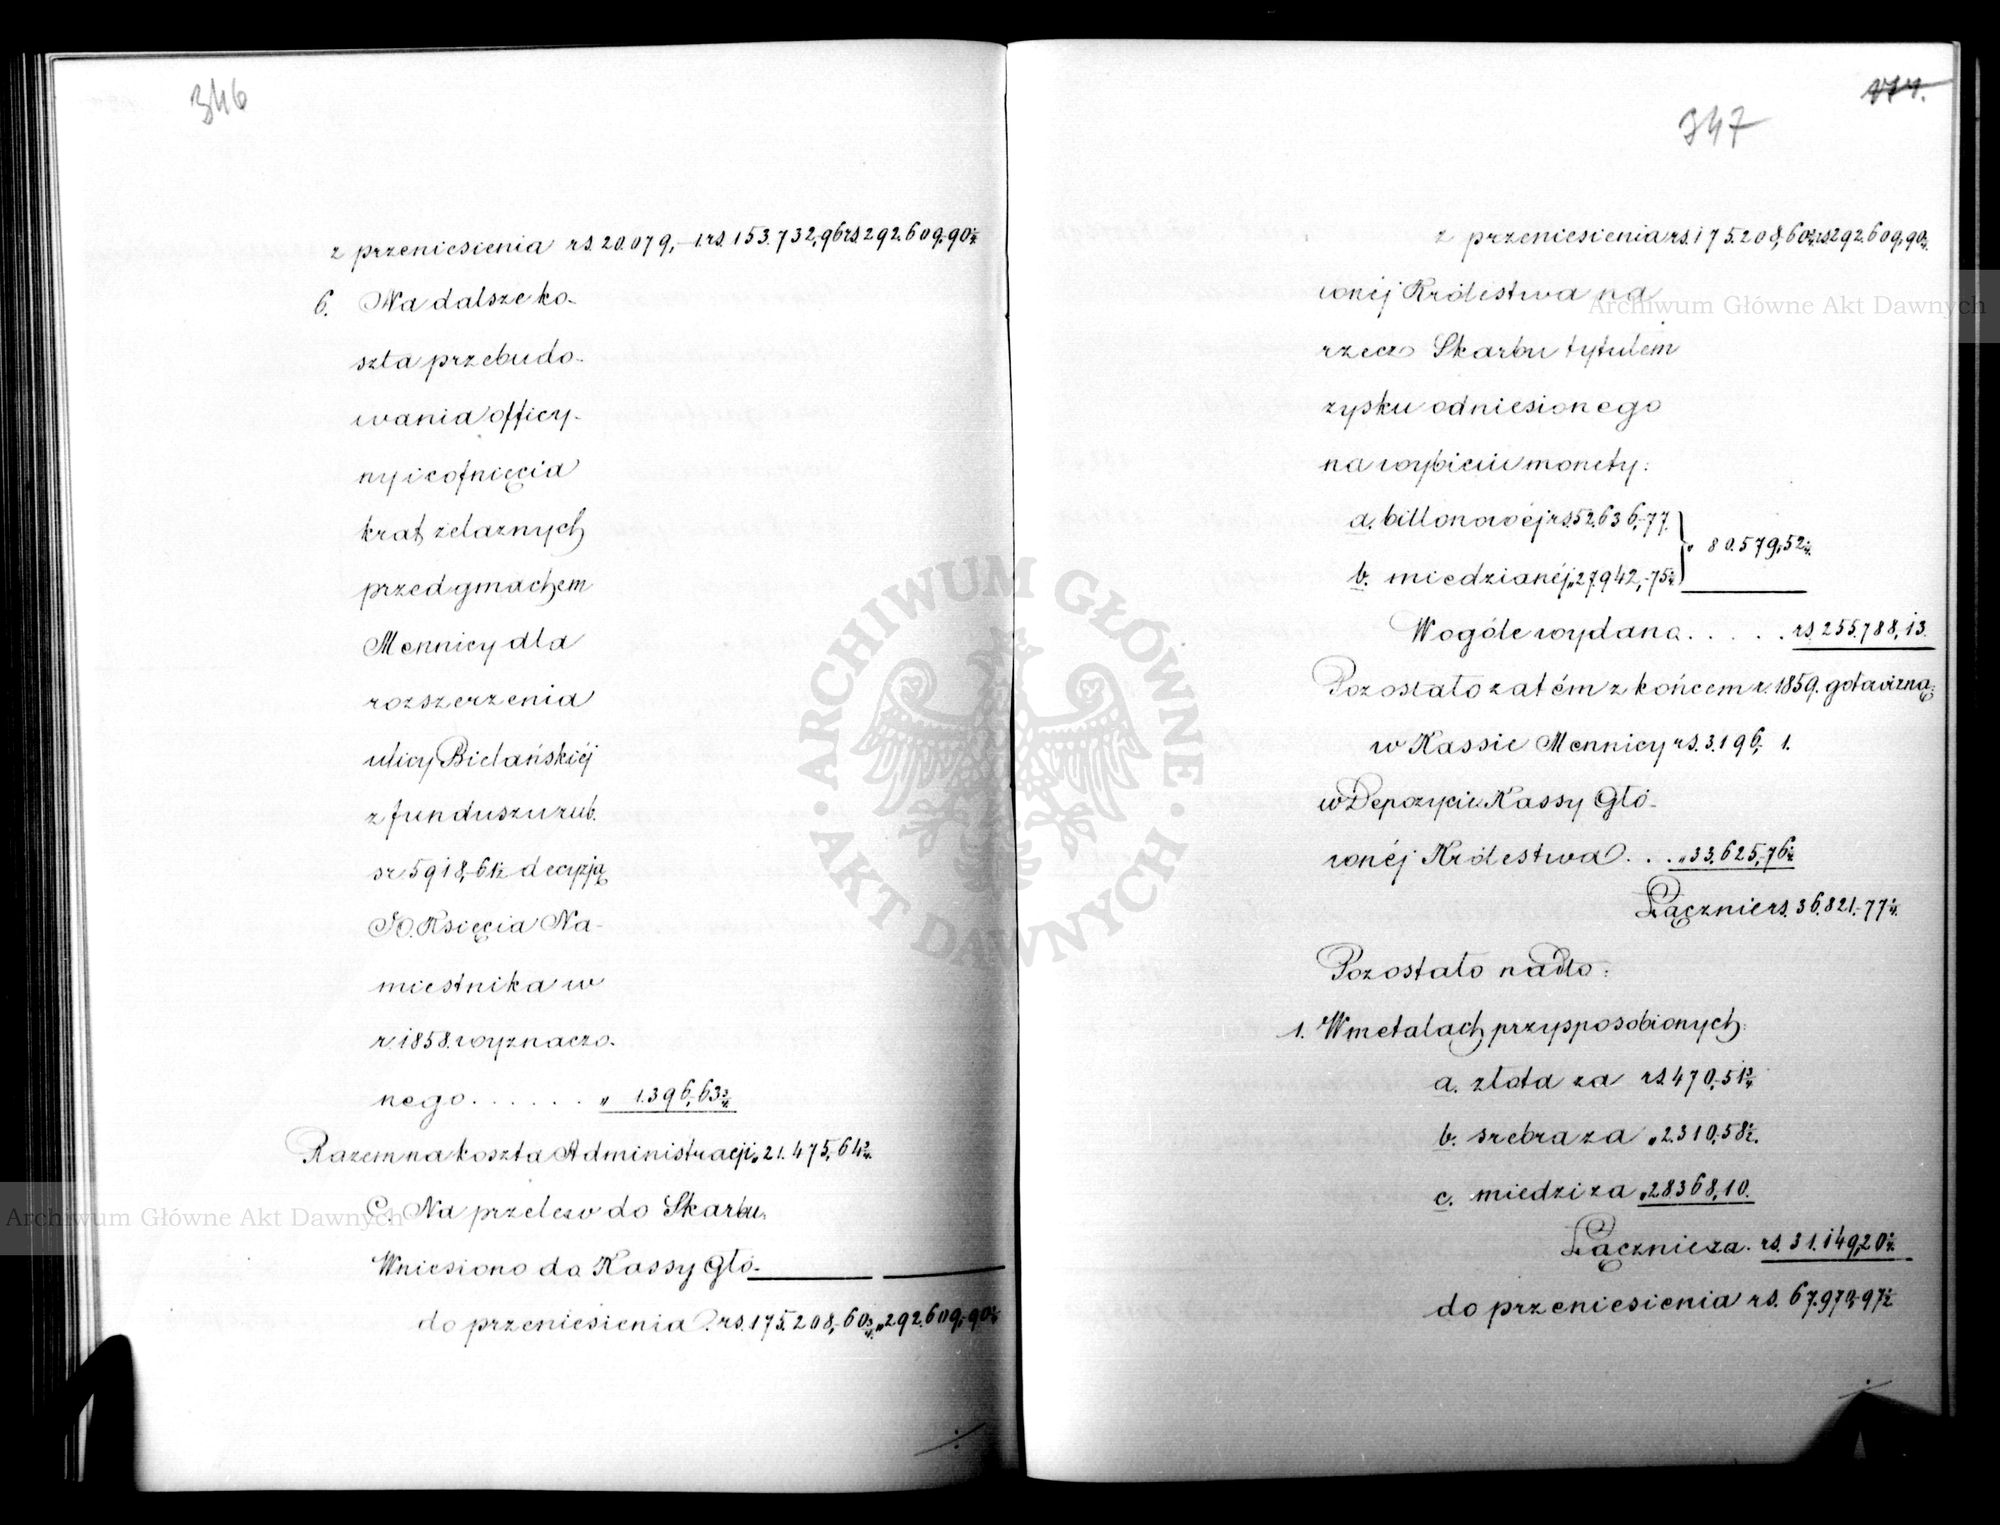 346
z przeniesienia rs. 20.079,-1. rs. 153.732,96 rs. 292.609,90¼
6. Na dalsze ko-
szta przebudo-
wania officy-
ny i cofnięcia
krat żelaznych
przed gmachem
Mennicy dla
rozszerzenia
ulicy Bielańskiéj
z funduszu rub.
sr 5918,-61½ decyzją
J.O. Księcia Na-
miestnika w
r. 1858. wyznaczo-
nego . . . . . . „ 1.396,-63¾
Razem na koszta Administracji „ 21.475,-64¾
C. Na przelew do Skarbu.
Wniesiono do Kassy Głó-
do przeniesienia . rs. 175.208,-60¾ „ 292.609,-90¼
347
z przeniesienia rs. 175.208,60¾ rs. 292.609,90¼
wnéj Królestwa na
rzecz Skarbu tytułem
zysku odniesionego
na wybiciu monety:
a. billonowéj rs. 52.636,-77.
„ 80.579,-52¼
b. miedzianéj „ 27.942,-75¼
Wogóle wydano . . . . . rs. 255.788,13.
Pozostało zatém z końcem r. 1859. gotowizną:
w Kassie Mennicy rs. 3.196, 1.
w Depozycie Kassy Głó-
wnéj Królestwa . . . „ 33,625,-76¼
Łącznie rs. 36.821,-77¼
Pozostało nadto:
1. W metalach przysposobionych:
a. złota za rs. 470,-51¾
b. srebra za „ 2.310,-58½.
c. miedzi za „ 28.368,10.
Łącznie za . rs. 31.149,20¼
do przeniesienia rs. 67.970,-97½
ARCHIWUM GŁÓWNE
AKT DAWNYCH
Archiwum Główne Akt Dawnych
Archiwum Główne Akt Dawnych